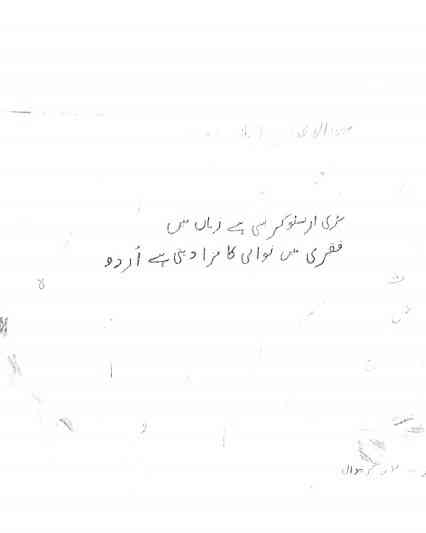 بڑی ارسٹوکرسی ہے زباں میں
فقری میں نوابی کا مزا دیتی ہے اُردو